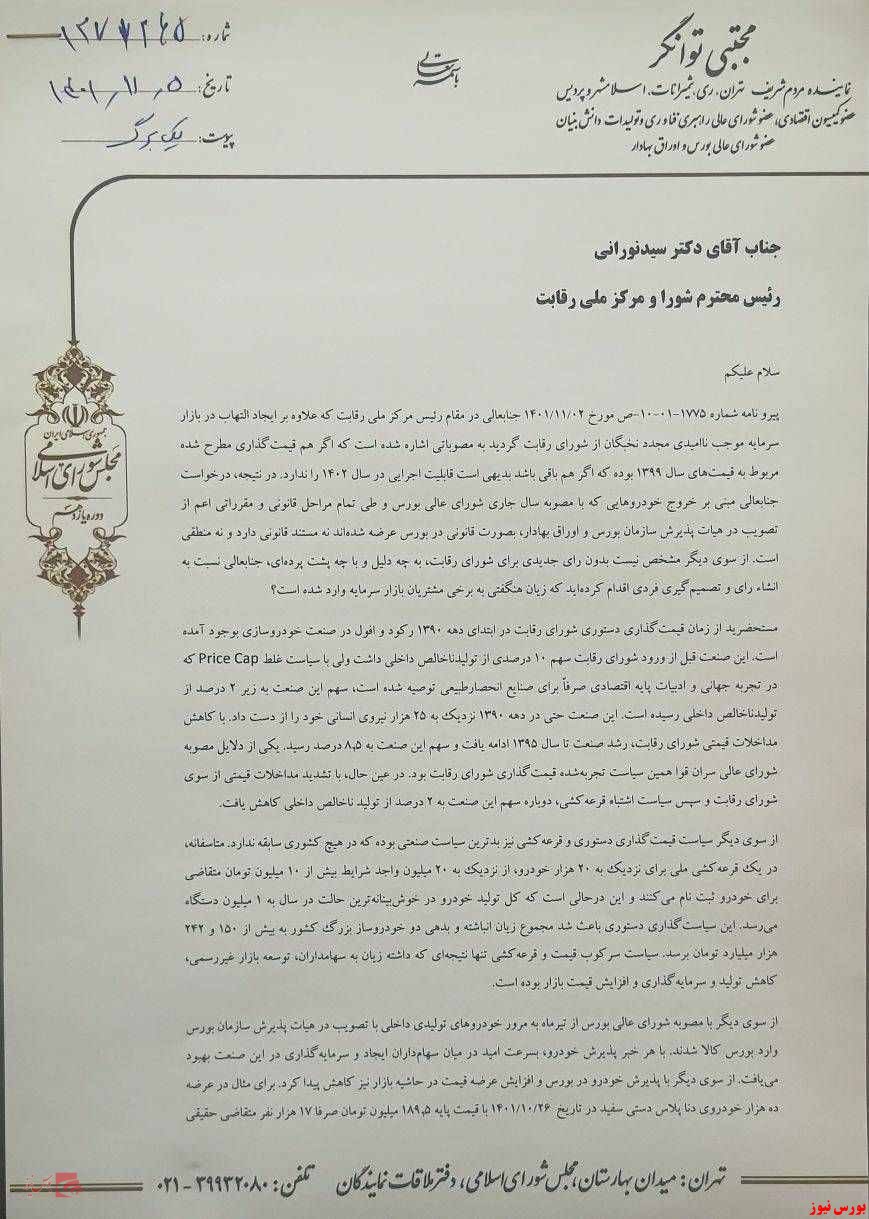 مجتبی توانگر
نماینده مردم شریف تهران، ری، شمیرانات، اسلامشهر و پردیس
عضو کمیسیون اقتصادی، عضو شورای عالی راهبری فناوری و تولیدات دانش بنیان
عضو شورای عالی بورس و اوراق بهادار
باسمه تعالی
شماره:
تاریخ: ۱۴۰۱/۱۱/۰۵
پیوست: یک برگ
جناب آقای دکتر سیدنورانی
رئیس محترم شورا و مرکز ملی رقابت
سلام علیکم
پیرو نامه شماره ۱۷۷۵-۰۱-۱۰-ص مورخ ۱۴۰۱/۱۱/۰۲ جنابعالی در مقام رئیس مرکز ملی رقابت که علاوه بر ایجاد التهاب در بازار
سرمایه موجب ناامیدی مجدد نخبگان از شورای رقابت گردید به مصوباتی اشاره شده است که اگر هم قیمت‌گذاری مطرح شده
مربوط به قیمت‌های سال ۱۳۹۹ بوده که اگر هم باقی باشد بدیهی است قابلیت اجرایی در سال ۱۴۰۲ را ندارد. در نتیجه، درخواست
جنابعالی مبنی بر خروج خودروهایی که با مصوبه سال جاری شورای عالی بورس و طی تمام مراحل قانونی و مقرراتی اعم از
تصویب در هیات پذیرش سازمان بورس و اوراق بهادار، بصورت قانونی در بورس عرضه شده‌اند نه مستند قانونی دارد و نه منطقی
است. از سوی دیگر مشخص نیست بدون رای جدیدی برای شورای رقابت، به چه دلیل و با چه پشت پرده‌ای، جنابعالی نسبت به
انشاء رای و تصمیم‌گیری فردی اقدام کرده‌اید که زیان هنگفتی به برخی مشتریان بازار سرمایه وارد شده است؟
مستحضرید از زمان قیمت‌گذاری دستوری شورای رقابت در ابتدای دهه ۱۳۹۰ رکود و افول در صنعت خودروسازی بوجود آمده
است. این صنعت قبل از ورود شورای رقابت سهم ۱۰ درصدی از تولیدناخالص داخلی داشت ولی با سیاست غلط Price Cap که
در تجربه جهانی و ادبیات پایه اقتصادی صرفاً برای صنایع انحصارطبیعی توصیه شده است، سهم این صنعت به زیر ۲ درصد از
تولیدناخالص داخلی رسیده است. این صنعت حتی در دهه ۱۳۹۰ نزدیک به ۲۵ هزار نیروی انسانی خود را از دست داد. با کاهش
مداخلات قیمتی شورای رقابت، رشد صنعت تا سال ۱۳۹۵ ادامه یافت و سهم این صنعت به ۸٫۵ درصد رسید. یکی از دلایل مصوبه
شورای عالی سران قوا همین سیاست تجربه‌شده قیمت‌گذاری شورای رقابت بود. در عین حال، با تشدید مداخلات قیمتی از سوی
شورای رقابت و سپس سیاست اشتباه قرعه‌کشی، دوباره سهم این صنعت به ۲ درصد از تولید ناخالص داخلی کاهش یافت.
از سوی دیگر سیاست قیمت‌گذاری دستوری و قرعه‌کشی نیز بدترین سیاست صنعتی بوده که در هیچ کشوری سابقه ندارد. متاسفانه،
در یک قرعه‌کشی ملی برای نزدیک به ۲۰ هزار خودرو، از نزدیک به ۲۰ میلیون واجد شرایط بیش از ۱۰ میلیون تومان متقاضی
برای خودرو ثبت نام می‌کنند و این درحالی است که کل تولید خودرو در خوش‌بینانه‌ترین حالت در سال به ۱ میلیون دستگاه
می‌رسد. این سیاست‌گذاری دستوری باعث شد مجموع زیان انباشته و بدهی دو خودروساز بزرگ کشور به بیش از ۱۵۰ و ۲۴۲
هزار میلیارد تومان برسد. سیاست سرکوب قیمت و قرعه‌کشی تنها نتیجه‌ای که داشته زیان به سهامداران، توسعه بازار غیررسمی،
کاهش تولید و سرمایه‌گذاری و افزایش قیمت بازار بوده است.
از سوی دیگر با مصوبه شورای عالی بورس از تیرماه به مرور خودروهای تولیدی داخلی با تصویب در هیات پذیرش سازمان بورس
وارد بورس کالا شدند. با هر خبر پذیرش خودرو، بسرعت امید در میان سهام‌داران ایجاد و سرمایه‌گذاری در این صنعت بهبود
می‌یافت. از سوی دیگر با پذیرش خودرو در بورس و افزایش عرضه قیمت در حاشیه بازار نیز کاهش پیدا کرد. برای مثال در عرضه
ده هزار خودروی دنا پلاس دستی سفید در تاریخ ۱۴۰۱/۱۰/۲۶ با قیمت پایه ۱۸۹٫۵ میلیون تومان صرفا ۱۷ هزار نفر متقاضی حقیقی
جمهوری اسلامی ایران
مجلس شورای اسلامی
دوره یازدهم
تهران: میدان بهارستان، مجلس شورای اسلامی، دفتر ملاقات نمایندگان تلفن: ۳۹۹۳۲۰۸۰-۰۲۱
بورس نیوز